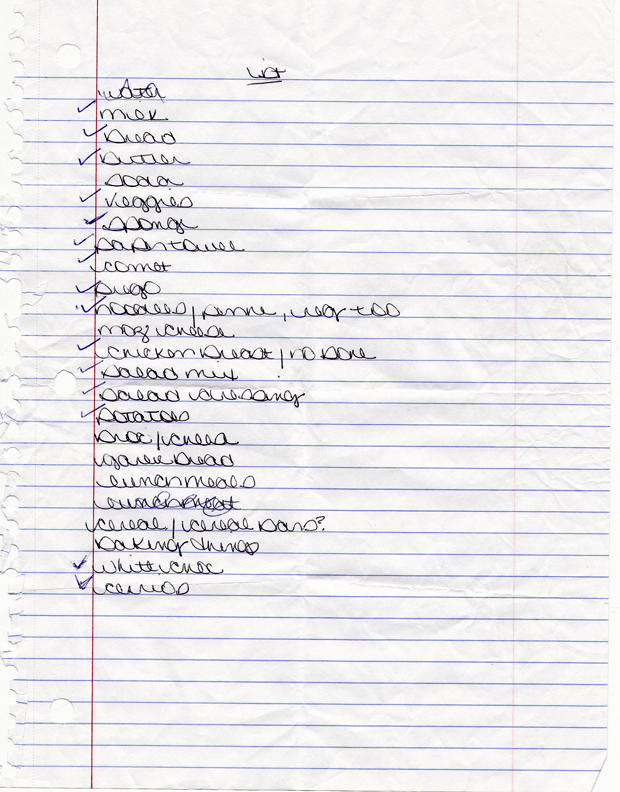 List
water
milk
bread
butter
soda
veggies
sponge
papertowel
comet
prego
noodles / penne, reg too
moz cheese
chicken breast / no bone
salad mix
salad dressing
potatoes
broc / cheese
garlic bread
lunch meals
lunch meat
cereal / cereal bars?
baking things
white choc